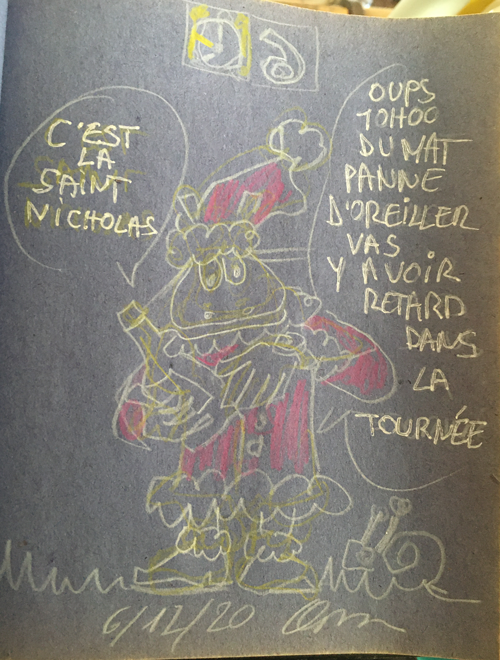 C'EST
LA
SAINT
NICHOLAS
OUPS
10H00
DU MAT
PANNE
D'OREILLER
VAS
Y AVOIR
RETARD
DANS
LA
TOURNÉE
6/12/20